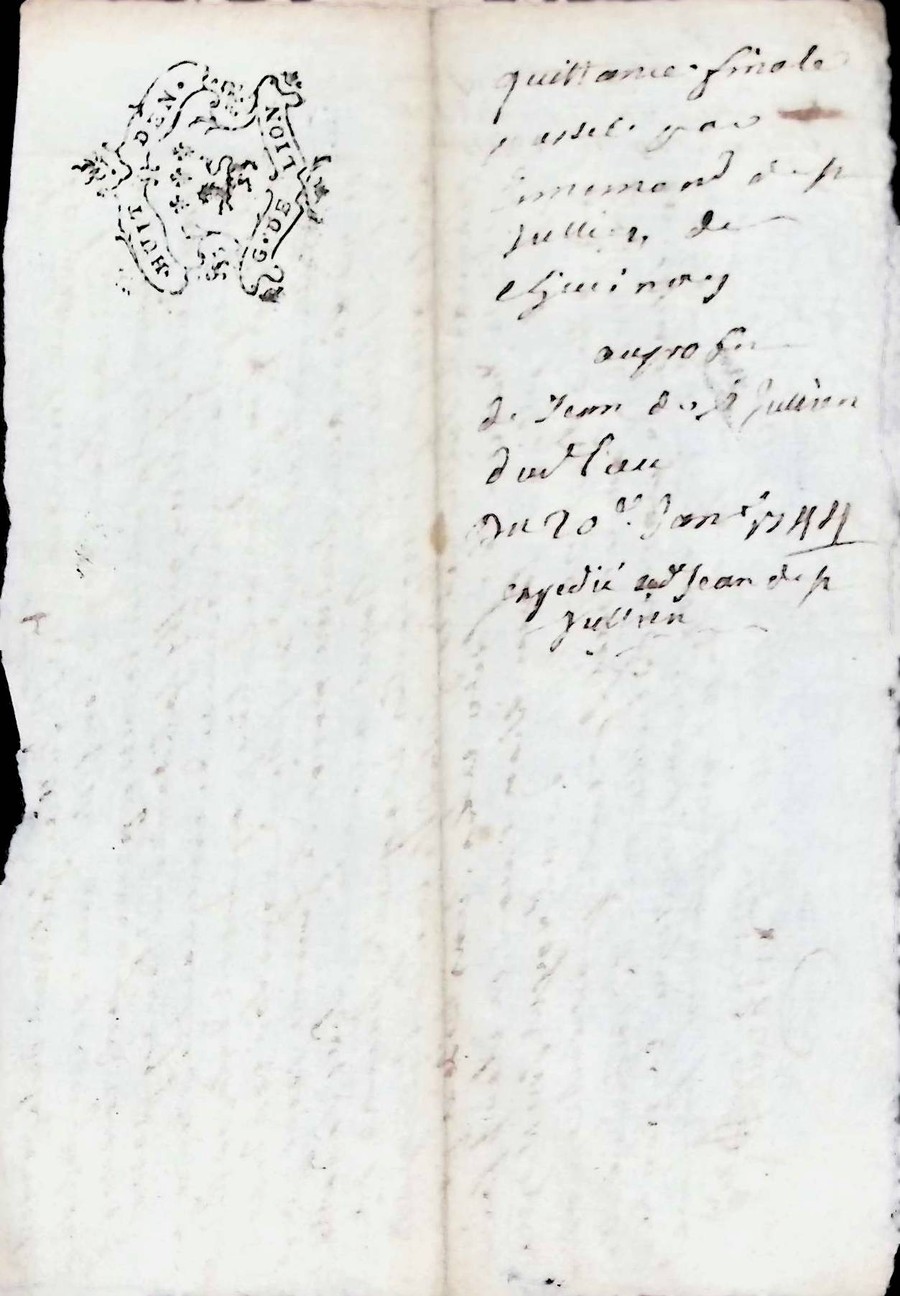 HUIT DEN.
G. DE LION
quittance finale
passée par
Ennemond de St
Jullien, de
Chuinoy
au profit
de Jean de St Jullien
dud. lieu
Du 20e Janr 1744
expedié aud Jean de St
Jullien